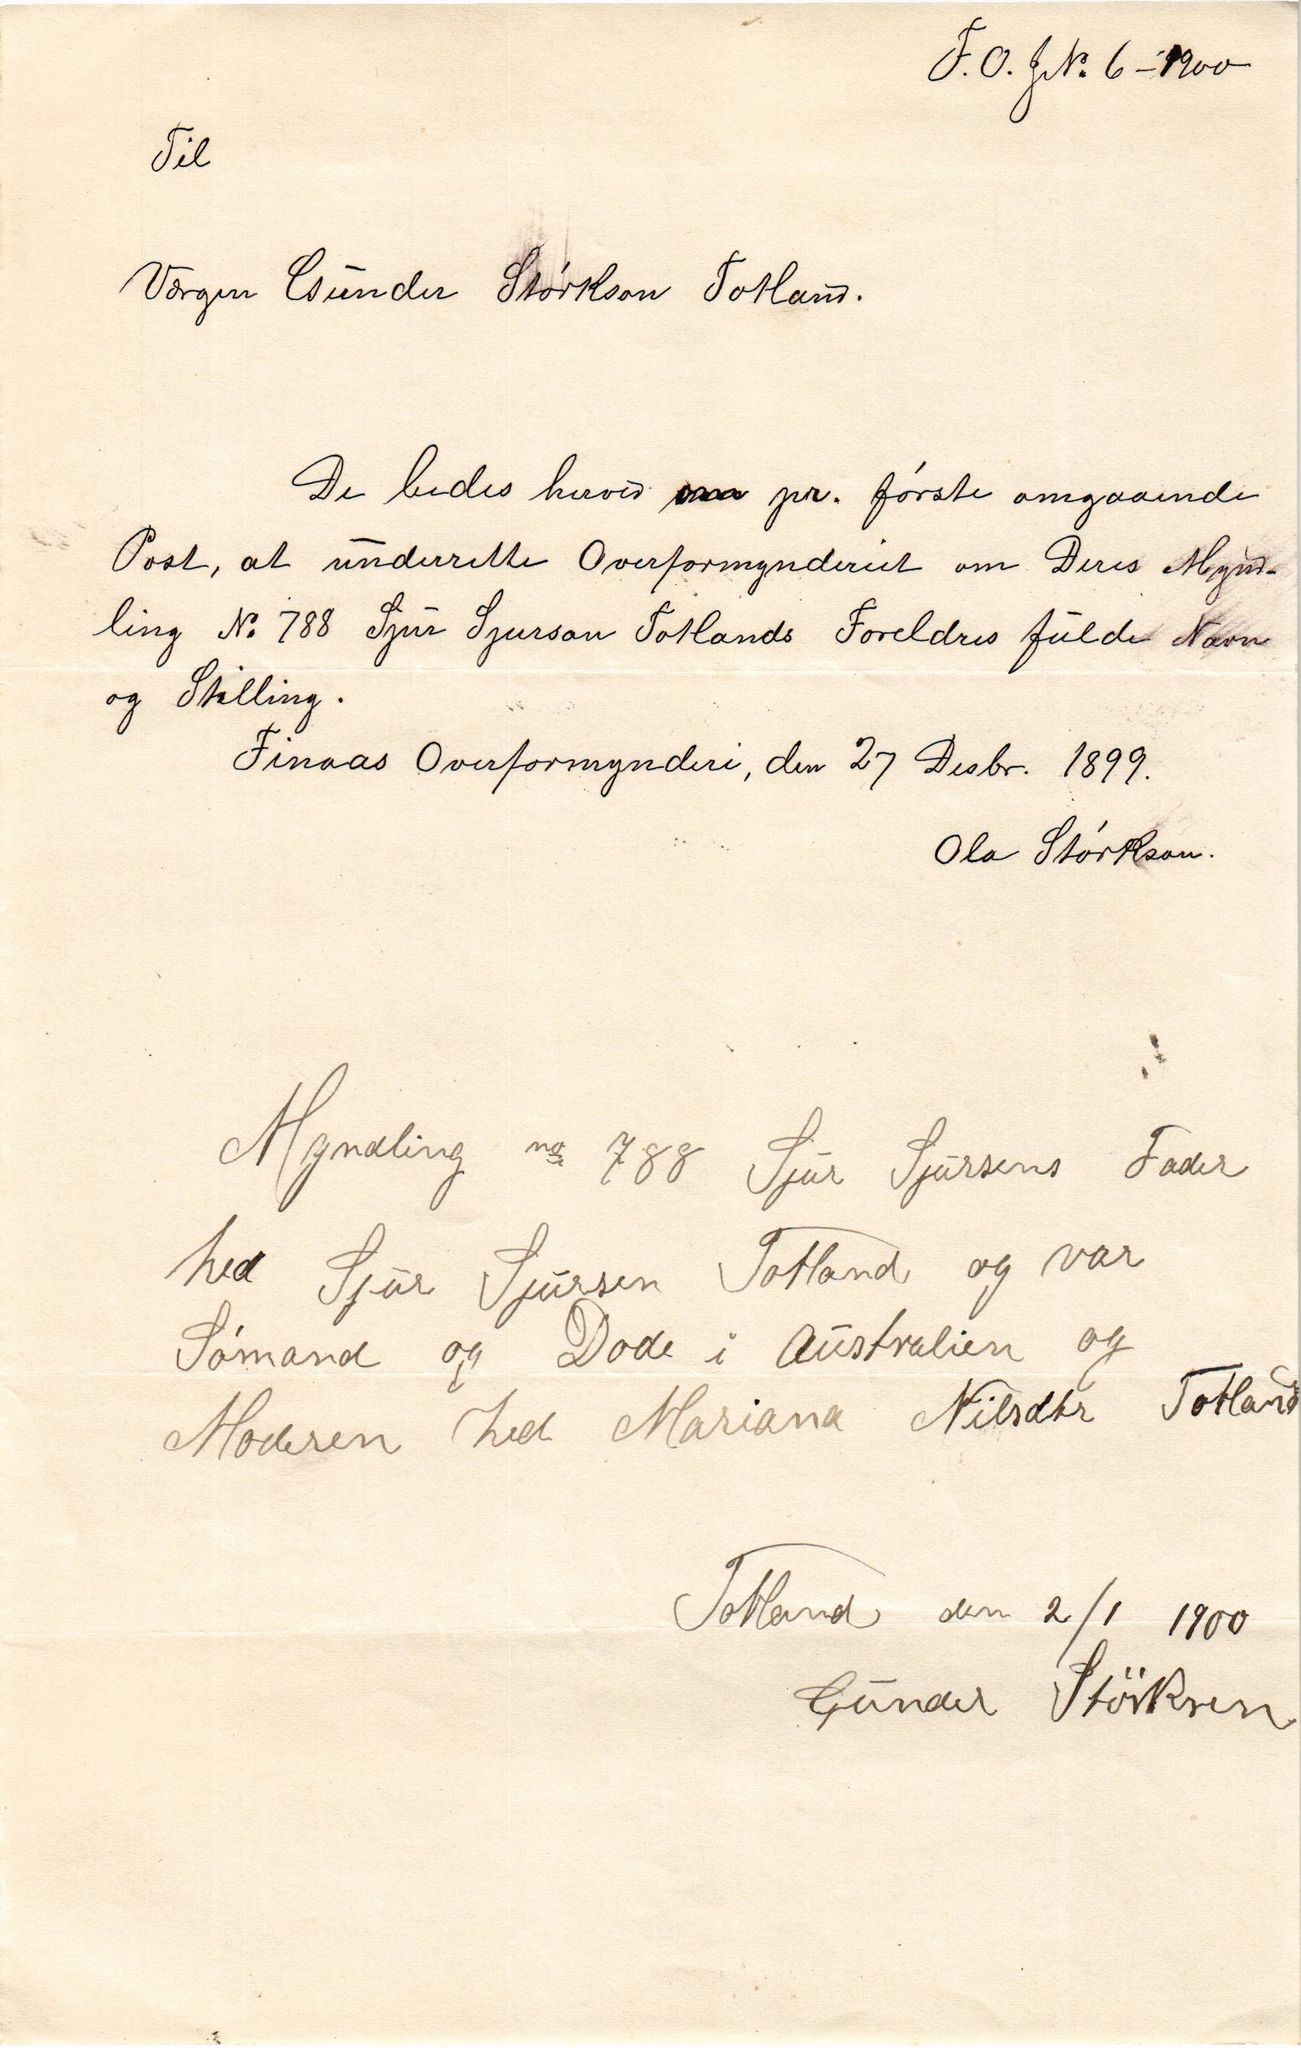 F.O. J.N. 6-1900
Til
Værgen Gunder Störkson Totland.
De bedes herved pr. förste omgaaende
Post, at underrette Overformynderiet om Deres Mynd-
ling N. 788 Sjur Sjurson Totlands Foreldres fulde Navn
og Stilling.
Finaas Overformynderi, den 27 Desbr. 1899.
Ola Störkson.
Myndling no 788 Sjur Sjursens Fader
hed Sjur Sjursen Totland og var
Sömand og Dode i Australien og
Moderen hed Mariana Nilsdtr Totland
Totland den 2/1 1900
Gunder Störksen